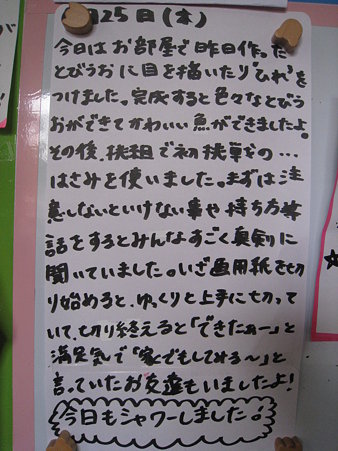 月25日(木)
今日はお部屋で昨日作った
とびうおに目を描いたり"ひれ"を
つけました。完成すると色々なとびう
おができてかわいい魚ができましたよ。
その後、桃組で初挑戦の…
はさみを使いました。まずは注
意しないといけない事や持ち方等
話をするとみんなすごく真剣に
聞いていました。いざ画用紙を切
り始めると、ゆっくりと上手に切って
いて、切り終えると「できたぁー」と
満足気で「家でもしてみる〜」と
言っていたお友達もいましたよ!
今日もシャワーしました♪